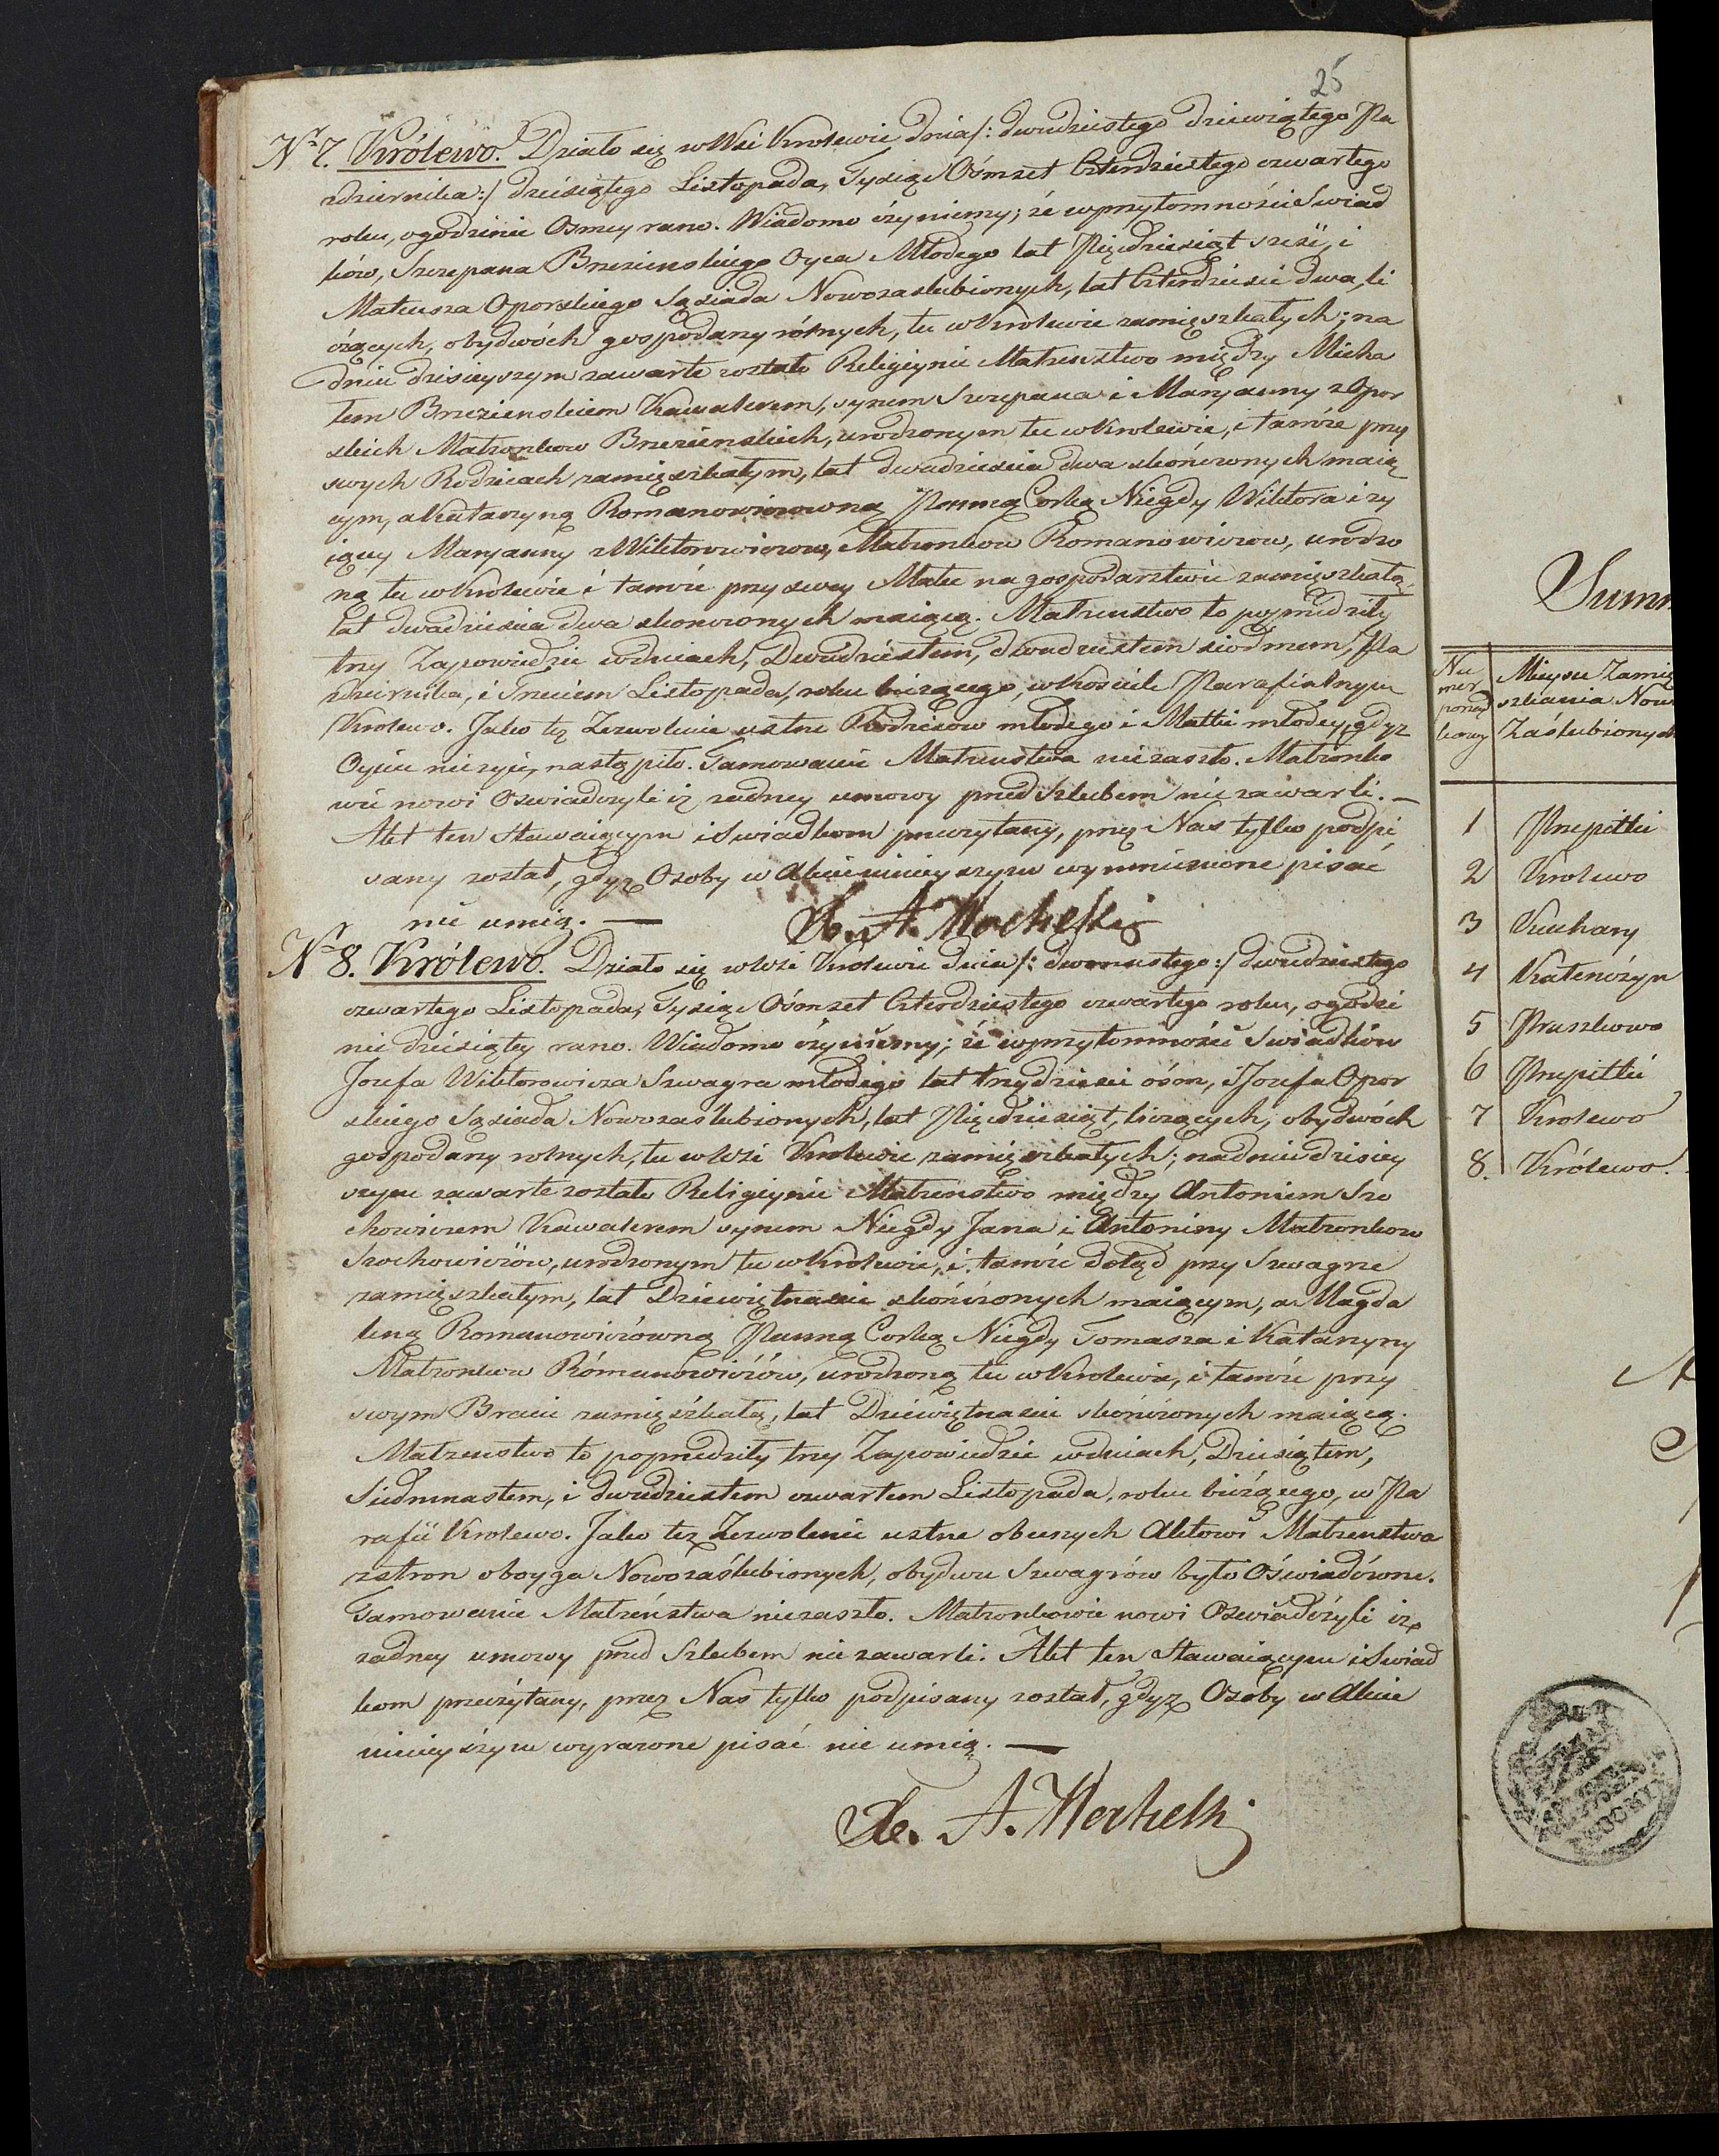 25
Nr 7. Królewo. Działo się w Wsi Krolewie dnia /: dwudziestego dziewiątego Pa
zdziernika :/ dziesiątego Listopada, Tysiąc Ośmset Czterdziestego czwartego
roku, ogodzinie Osmey rano. Wiadomo czyniemy; że wprzytomności Swiad
ków, Szczepana Brzezinskiego Oyca Młodego lat Pięcdziesiąt sześć, i
Mateusza Oporskiego Sąsiada Nowozaslubionych, lat Czterdziesci dwa, li
czących, obydwóch gospodarzy rolnych, tu w Krolewie zamięszkałych; na
dniu dzisieyszym zawarte zostało Religiynie Małzenstwo między Micha
łem Brzezienskiem Kawalerem, synem Szczepana i Maryanny z Opor
skich Małzonkow Brzezienskich, urodzonym tu w Krolewie, i tamże przy
swych Rodzicach zamięszkałym, lat dwadziescia dwa skończonych maią
cym, a Katarzyną Romanowiczowną Panną Corką Niegdy Wiktora i zy
iącey Maryanny z Wiktorowiczow, Małzonkow Romanowiczow, urodzo
ną tu w Krolewie i tamże przy swey Matce na gospodarstwie zamięszkałą,
lat dwadziescia dwa skonczonych maiącą. Małzenstwo to poprzedziły
trzy Zapowiedzie wdniach, Dwudziestem, dwudziestem siodmem, Pa
zdziernika, i Trzeciem Listopada, roku bieżącego, w Kościele Parafialnym
Krolewo. Jako tez Zezwolenie ustne Rodzicow młodego i Matki młodey, gdyz
Oyciec nieżyie, nastąpiło. Tamowanie Małzenstwa nie zaszło. Małzonko
wie nowi Oswiadczyli iz zadney umowy przed Szlubem nie zawarli. —
Akt ten Stawaiącym i Swiadkom przeczytany, przez Nas tylko podpi
sany został, gdyz Osoby w Akcie ninieyszym wymienione pisać
nie umią. —
X. A. Mochelski
Nr 8. Królewo. Działo się w Wsi Krolewie dnia /: dwunastego :/ dwudziestego
czwartego Listopada, Tysiąc Ośmset Czterdziestego czwartego roku, ogodzi
nie dziesiątey rano. Wiadomo czyniemy; że wprzytomności Swiadków
Jozefa Wiktorowicza Szwagra młodego lat trzydziesci ośm, i Jozefa Opor
skiego Sąsiada Nowozaślubionych, lat Pięcdziesiąt, liczących, obydwóch
gospodarzy rolnych, tu w Wsi Krolewie zamięszkałych; nadniu dzisiey
szym zawarte zostało Religiynie Małzenstwo między Antoniem Szo
chowiczem Kawalerem synem Niegdy Jana i Antoniny Małzonkow
Szochowiczów, urodzonym tu w Krolewie, i tamże dotąd przy Szwagrze
zamięszkałym, lat Dziewiętnascie skończonych maiącym, a Magda
leną Romanowiczówną Panną Corką Niegdy Tomasza i Katarzyny
Małzonkow Romanowiczów, urodzoną tu w Krolewie, i tamże przy
swym Bracie zamięszkałą, lat Dziewiętnascie skończonych maiącą.
Małzenstwo to poprzedziły trzy Zapowiedzie wdniach, Dziesiątem,
Siedmnastem, i dwudziestem czwartem Listopada, roku bieżącego, w Pa
rafii Krolewo. Jako tez Zezwolenie ustne obecnych Aktowi Małzenstwa
zstron oboyga Nowozaślubionych, obydwu Szwagrów było Oświadczone.
Tamowanie Małzeństwa niezaszło. Małzonkowie nowi Oswiadczyli iz
zadney umowy przed Szlubem nie zawarli. Akt ten Stawaiącym i Swiad
kom przeczytany, przez Nas tylko podpisany został, gdyz Osoby w Akcie
ninieyszym wyrazone pisać nie umią. —
X. A. Mochelski
Summ
Nu
mer
porząd
kowy
Mieysce Zamię
szkania Now
Zaślubionych
1 Przepitki
2 Krolewo
3 Kuchary
4
5 Pruszkowo
6 Przepitki
7 Krolewo
8. Królewo.